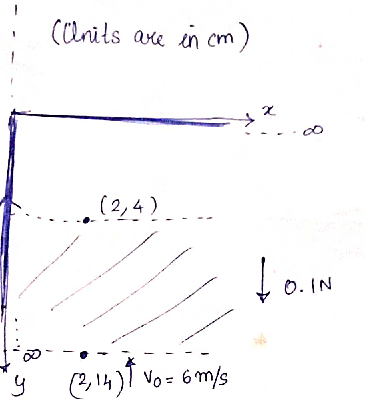 (Units are in cm)
x
∞
(2,4)
0.1N
∞
y
(2,14)
V₀ = 6 m/s